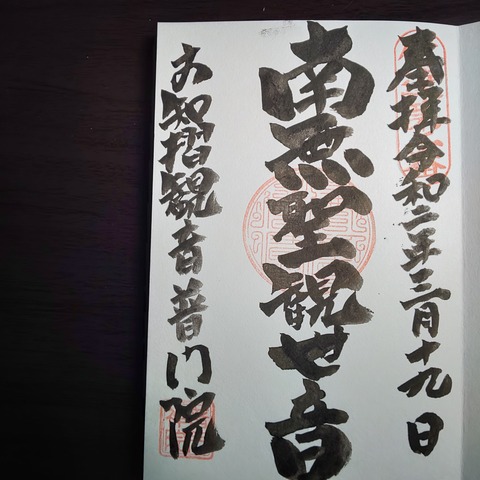 奉拝令和二年三月十九日
南無聖観世音
文知摺観音普門院